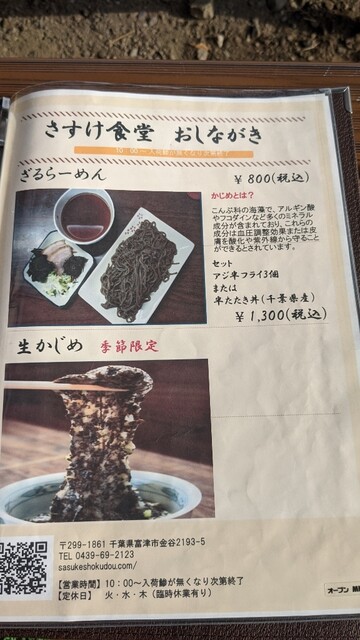 さすけ食堂 おしながき
10:00〜入荷鯵が無くなり次第終了
ざるらーめん ￥800(税込)
かじめとは？
こんぶ科の海藻で、アルギン酸
やフコダインなど多くのミネラル
成分が含まれており、これらの
成分は血圧調整効果または皮
膚を酸化や紫外線から守ること
ができるとされています。
セット
アジ半フライ3個
または
半たたき丼(千葉県産)
￥1,300(税込)
生かじめ 季節限定
〒299-1861 千葉県富津市金谷2193-5
TEL 0439-69-2123
sasukeshokudou.com/
【営業時間】10：00〜入荷鯵が無くなり次第終了
【定休日】 火・水・木（臨時休業有り）
オープン